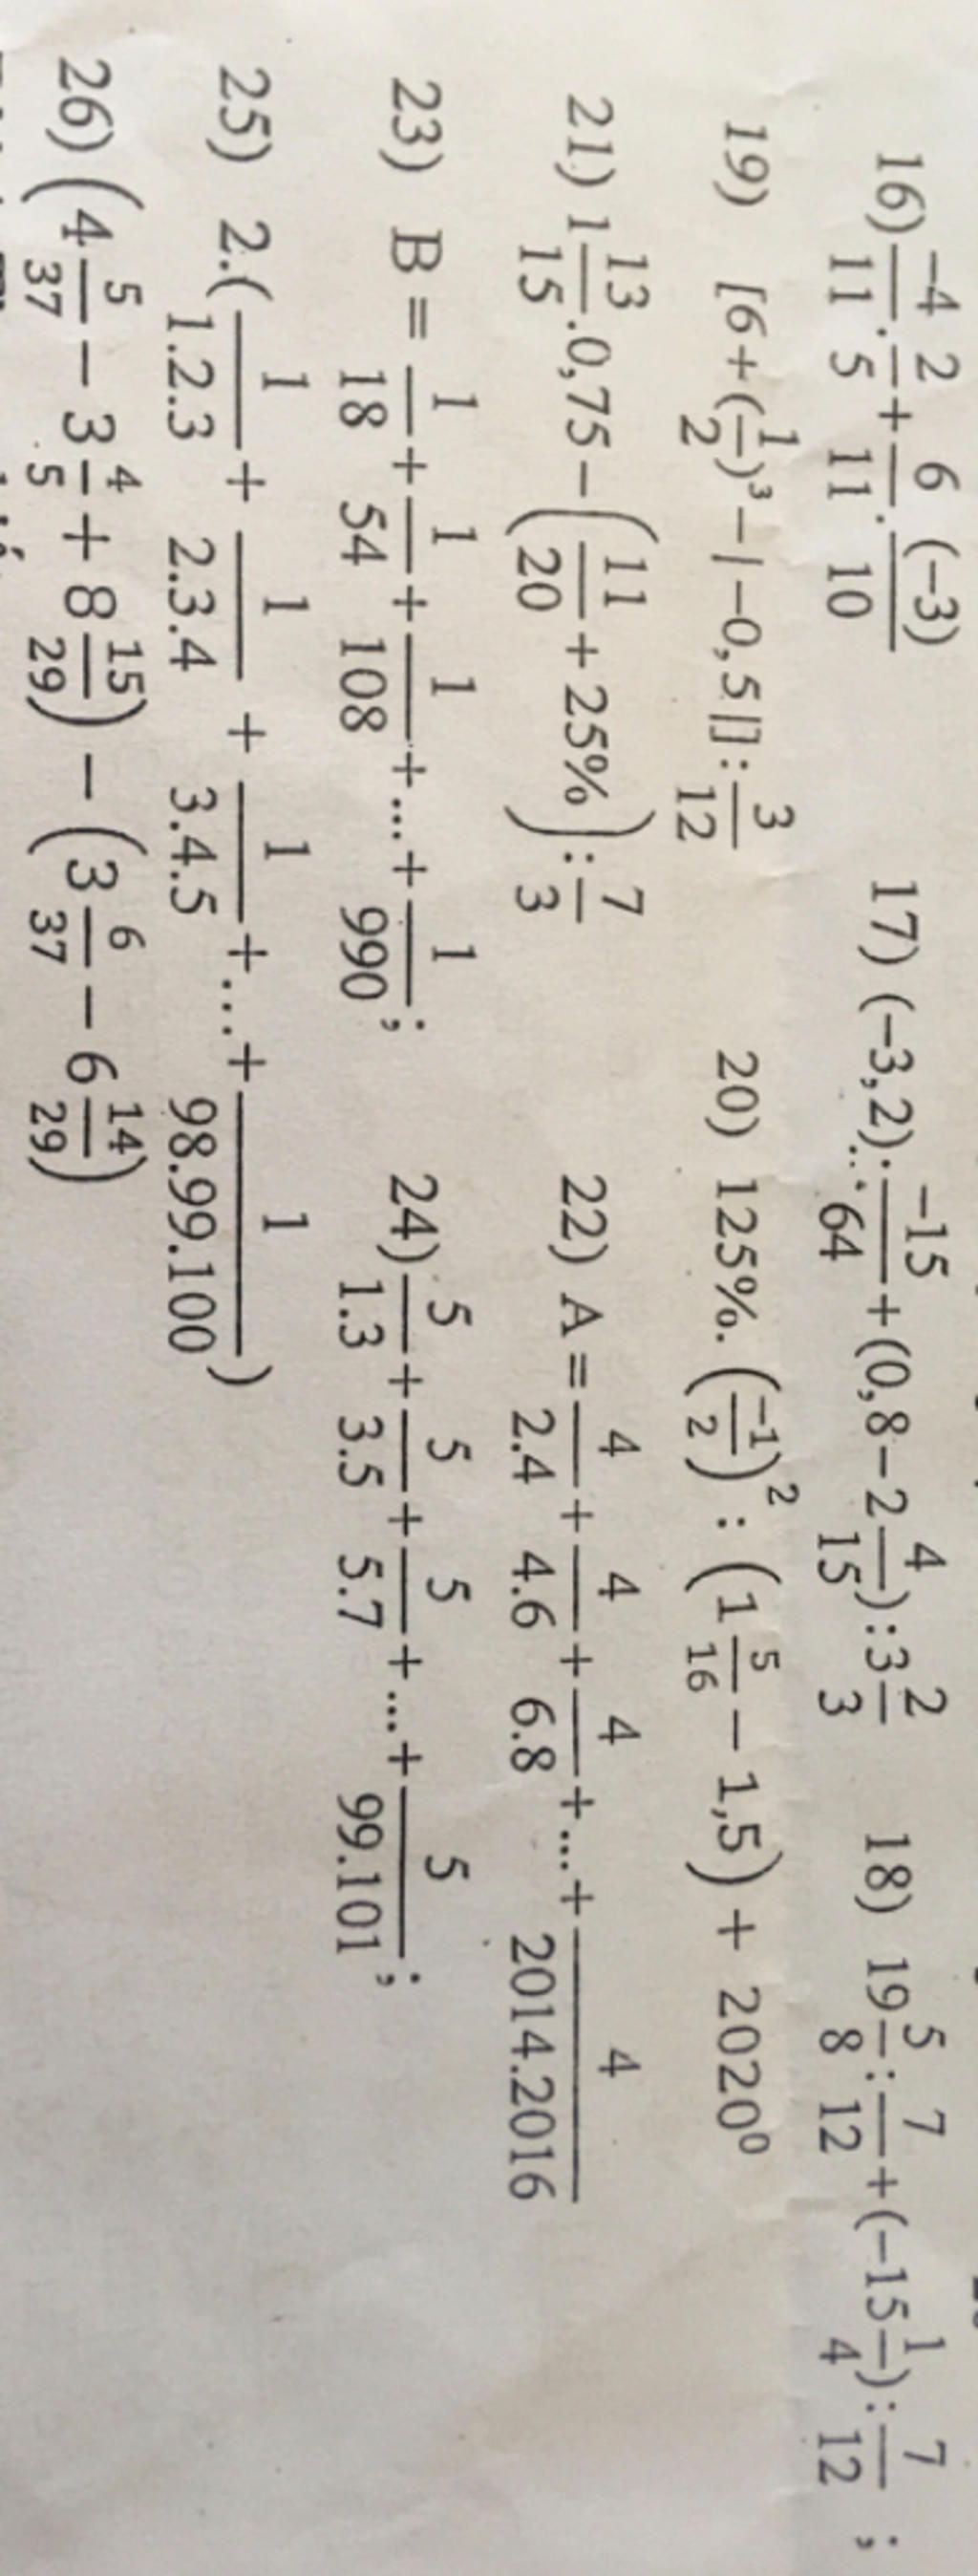 16) \frac{-4}{11}.\frac{2}{5}+\frac{6}{11}.\frac{(-3)}{10} 17) (-3,2).\frac{-15}{64}+(0,8-2\frac{4}{15}):3\frac{2}{3} 18) 19\frac{5}{8}:\frac{7}{12}+(-15\frac{1}{4}):\frac{7}{12} ;
19) [6+(\frac{1}{2})³-|-0,5|]:\frac{3}{12} 20) 125%.(\frac{-1}{2})²:(1\frac{5}{16}-1,5)+2020⁰
21) 1\frac{13}{15}.0,75-(\frac{11}{20}+25%):\frac{7}{3} 22) A=\frac{4}{2.4}+\frac{4}{4.6}+\frac{4}{6.8}+...+\frac{4}{2014.2016}
23) B=\frac{1}{18}+\frac{1}{54}+\frac{1}{108}+...+\frac{1}{990}; 24) \frac{5}{1.3}+\frac{5}{3.5}+\frac{5}{5.7}+...+\frac{5}{99.101};
25) 2.(\frac{1}{1.2.3}+\frac{1}{2.3.4}+\frac{1}{3.4.5}+...+\frac{1}{98.99.100})
26) (4\frac{5}{37}-3\frac{4}{5}+8\frac{15}{29})-(3\frac{6}{37}-6\frac{14}{29})